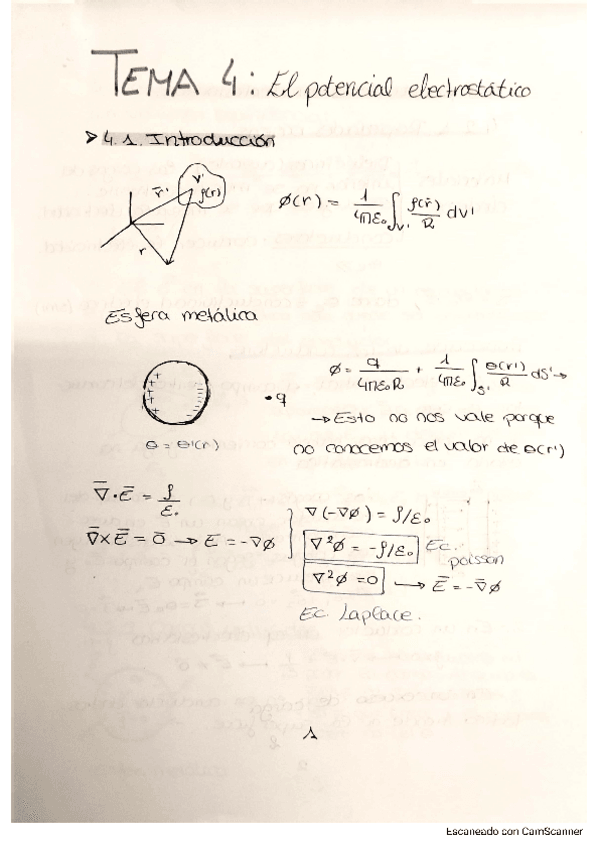 TEMA 4: El potencial electrostático
4.1. Introducción
V'
r̄'
ρ(r)
r
ϕ(r) = 1/4πε₀ ∫V' ρ(r̄)/R dv'
Esfera metálica
+ + + + +
- - - - -
• q
θ = θ'(r)
ϕ = q/4πε₀R₀ + 1/4πε₀ ∫S' θ(r')/R dS' →
→ Esto no nos vale porque
no conocemos el valor de θ(r')
∇̄·Ē = ρ/ε₀
∇̄×Ē = 0̄ → E = -∇ϕ
∇(-∇ϕ) = ρ/ε₀
∇²ϕ = -ρ/ε₀ Ec. poisson
∇²ϕ = 0 → Ē = -∇̄ϕ
Ec Laplace.
1
Escaneado con CamScanner